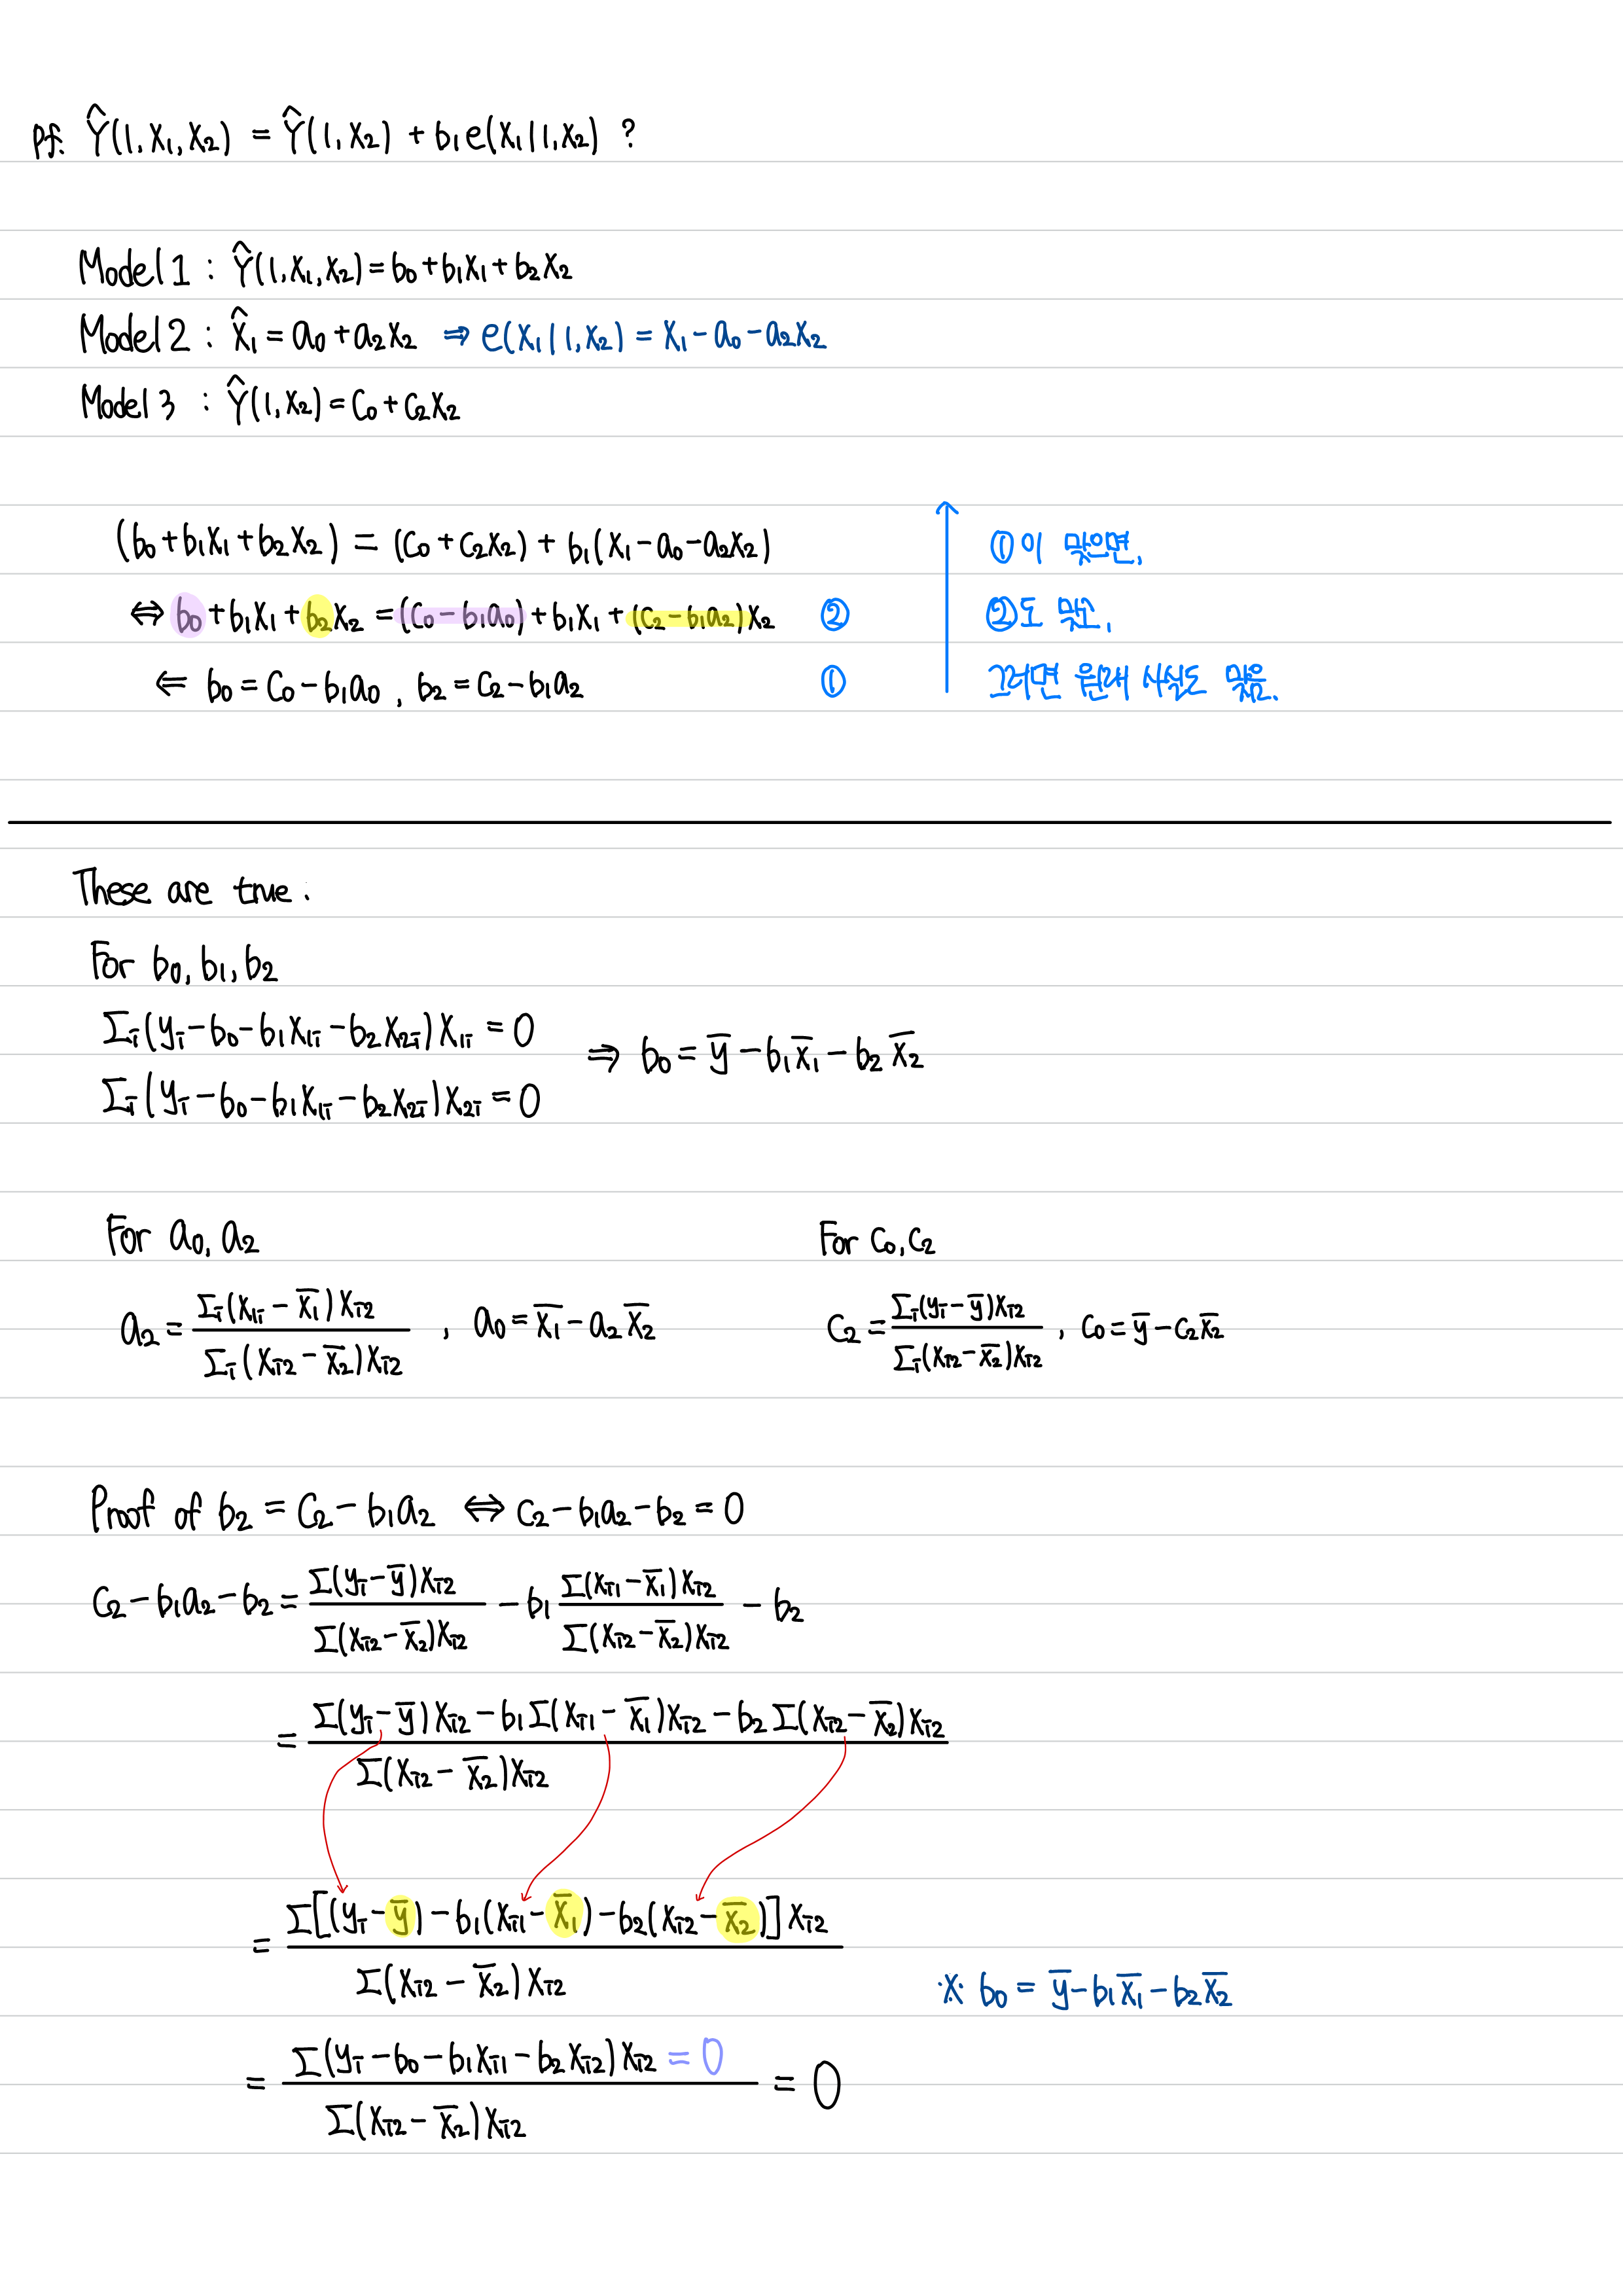 pf. Ŷ(1, X₁, X₂) = Ŷ(1, X₂) + b₁e(X₁|1, X₂) ?
Model 1 : Ŷ(1, X₁, X₂) = b₀ + b₁X₁ + b₂X₂
Model 2 : X̂₁ = a₀ + a₂X₂ ⇒ e(X₁|1, X₂) = X₁ - a₀ - a₂X₂
Model 3 : Ŷ(1, X₂) = C₀ + C₂X₂
(b₀ + b₁X₁ + b₂X₂) = (C₀ + C₂X₂) + b₁(X₁ - a₀ - a₂X₂) ①이 맞으면,
⇔ b₀ + b₁X₁ + b₂X₂ = (C₀ - b₁a₀) + b₁X₁ + (C₂ - b₁a₂)X₂ ② ②도 맞고,
⇐ b₀ = C₀ - b₁a₀ , b₂ = C₂ - b₁a₂ ① 그러면 원래 사실도 맞음.
These are true :
For b₀, b₁, b₂
Σᵢ(yᵢ - b₀ - b₁X₁ᵢ - b₂X₂ᵢ)X₁ᵢ = 0 ⇒ b₀ = ȳ - b₁x̄₁ - b₂x̄₂
Σᵢ(yᵢ - b₀ - b₁X₁ᵢ - b₂X₂ᵢ)X₂ᵢ = 0
For a₀, a₂ For C₀, C₂
a₂ = Σᵢ(X₁ᵢ - x̄₁)Xᵢ₂ / Σᵢ(Xᵢ₂ - x̄₂)Xᵢ₂ , a₀ = x̄₁ - a₂x̄₂ C₂ = Σᵢ(yᵢ - ȳ)Xᵢ₂ / Σᵢ(Xᵢ₂ - x̄₂)Xᵢ₂ , C₀ = ȳ - C₂x̄₂
Proof of b₂ = C₂ - b₁a₂ ⇔ C₂ - b₁a₂ - b₂ = 0
C₂ - b₁a₂ - b₂ = Σ(yᵢ - ȳ)Xᵢ₂ / Σ(Xᵢ₂ - x̄₂)Xᵢ₂ - b₁ Σ(Xᵢ₁ - x̄₁)Xᵢ₂ / Σ(Xᵢ₂ - x̄₂)Xᵢ₂ - b₂
= Σ(yᵢ - ȳ)Xᵢ₂ - b₁Σ(Xᵢ₁ - x̄₁)Xᵢ₂ - b₂Σ(Xᵢ₂ - x̄₂)Xᵢ₂ / Σ(Xᵢ₂ - x̄₂)Xᵢ₂
= Σ[(yᵢ - ȳ) - b₁(Xᵢ₁ - x̄₁) - b₂(Xᵢ₂ - x̄₂)]Xᵢ₂ / Σ(Xᵢ₂ - x̄₂)Xᵢ₂
※ b₀ = ȳ - b₁x̄₁ - b₂x̄₂
= Σ(yᵢ - b₀ - b₁Xᵢ₁ - b₂Xᵢ₂)Xᵢ₂ = 0 / Σ(Xᵢ₂ - x̄₂)Xᵢ₂ = 0